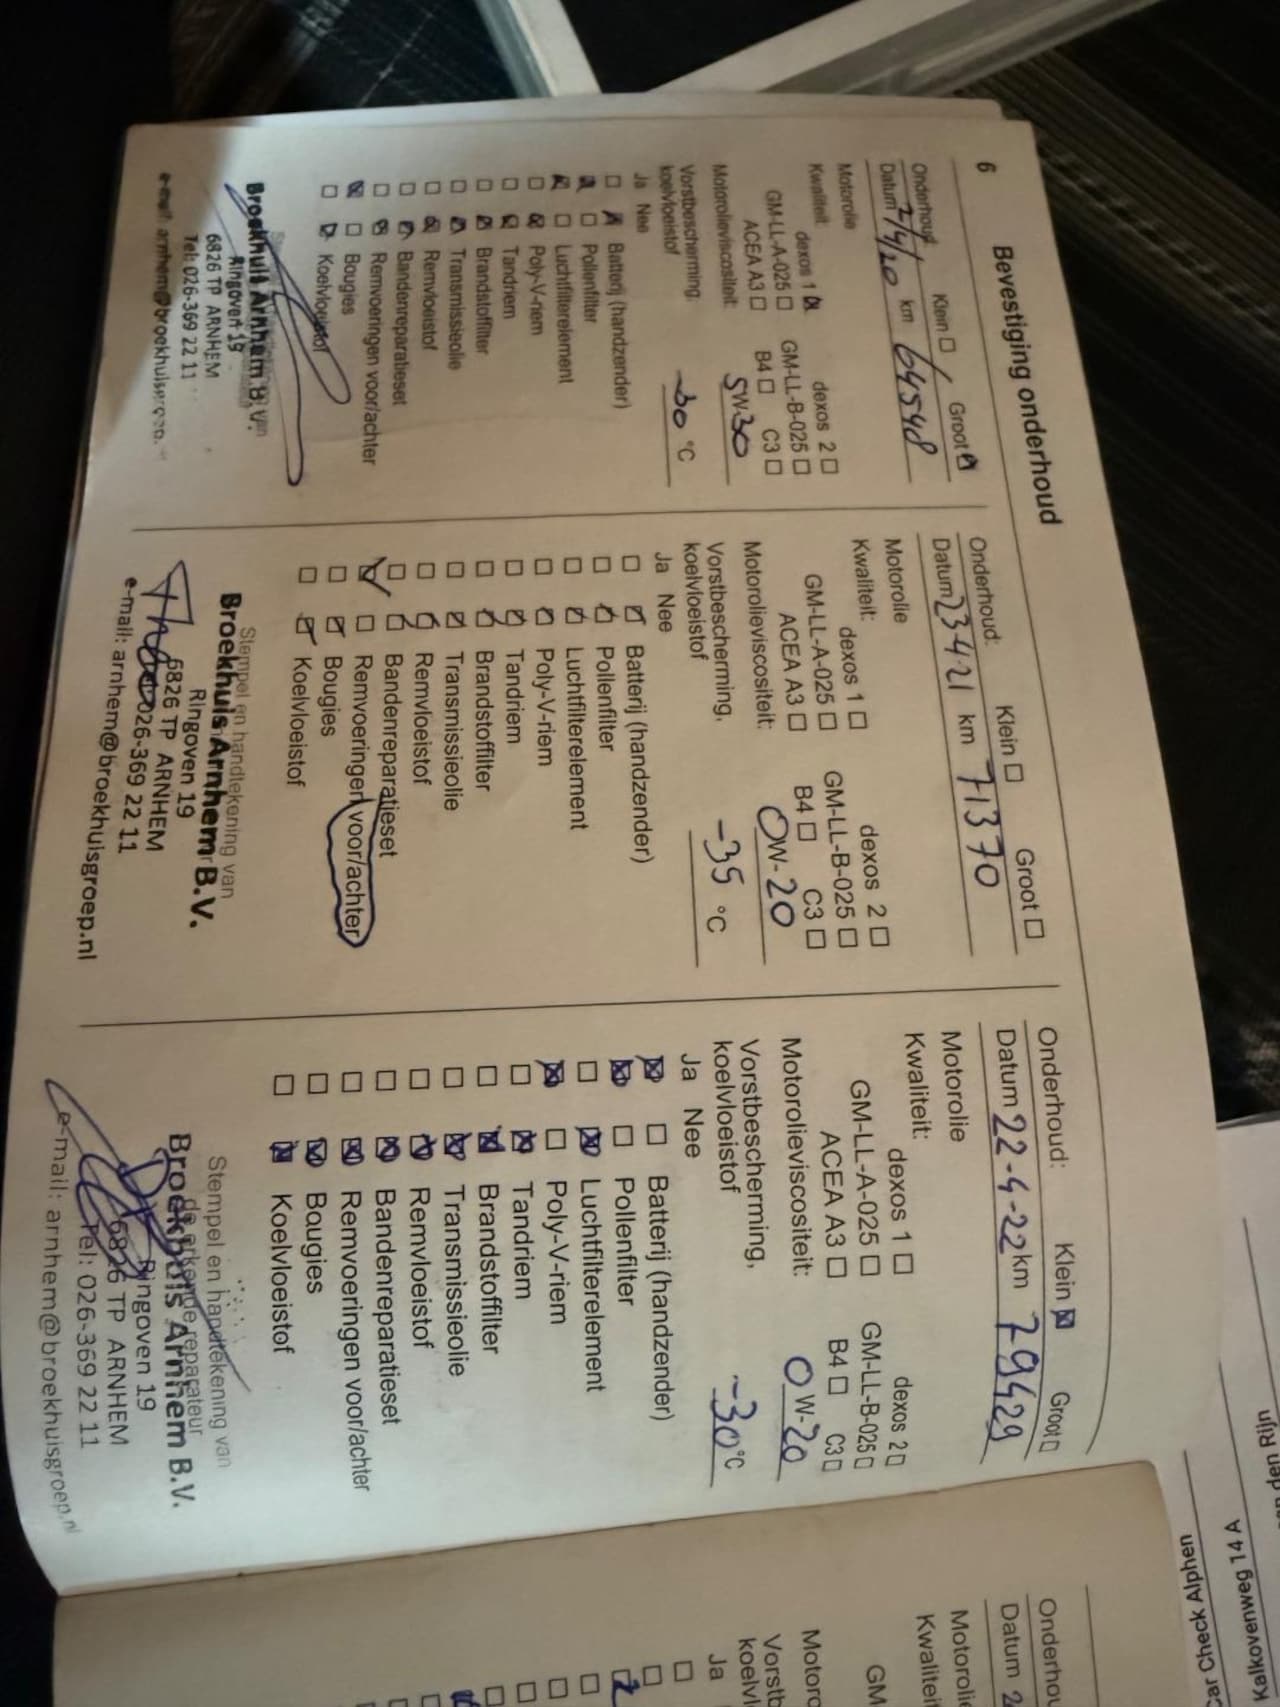 6 Bevestiging onderhoud
Onderhoud: Klein ☐ Groot ☒
Datum 7/4/20 km 64548
Motorolie
Kwaliteit: dexos 1 ☒ dexos 2 ☐
GM-LL-A-025 ☐ GM-LL-B-025 ☐
ACEA A3 ☐ B4 ☐ C3 ☐
Motorolieviscositeit: 5W30
Vorstbescherming,
koelvloeistof -30 °C
Ja Nee
☐ ☒ Batterij (handzender)
☒ ☐ Pollenfilter
☒ ☐ Luchtfilterelement
☐ ☒ Poly-V-riem
☐ ☒ Tandriem
☐ ☒ Brandstoffilter
☐ ☒ Transmissieolie
☐ ☒ Remvloeistof
☐ ☒ Bandenreparatieset
☐ ☒ Remvoeringen voor/achter
☒ ☐ Bougies
☐ ☒ Koelvloeistof
Broekhuis Arnhem B.V.
Ringoven 19
6826 TP ARNHEM
Tel: 026-369 22 11
Onderhoud: Klein ☐ Groot ☐
Datum 23421 km 71370
Motorolie
Kwaliteit: dexos 1 ☐ dexos 2 ☐
GM-LL-A-025 ☐ GM-LL-B-025 ☐
ACEA A3 ☐ B4 ☐ C3 ☐
Motorolieviscositeit: 0W-20
Vorstbescherming,
koelvloeistof -35 °C
Ja Nee
☐ ☑ Batterij (handzender)
☐ ☑ Pollenfilter
☐ ☑ Luchtfilterelement
☐ ☑ Poly-V-riem
☐ ☑ Tandriem
☐ ☑ Brandstoffilter
☐ ☑ Transmissieolie
☐ ☑ Remvloeistof
☐ ☑ Bandenreparatieset
☑ ☐ Remvoeringen voor/achter
☐ ☑ Bougies
☐ ☑ Koelvloeistof
Stempel en handtekening van
Broekhuis Arnhem B.V.
Ringoven 19
6826 TP ARNHEM
026-369 22 11
e-mail: arnhem@broekhuisgroep.nl
Onderhoud: Klein ☒ Groot ☐
Datum 22-4-22 km 79429
Motorolie
Kwaliteit: dexos 1 ☐ dexos 2 ☐
GM-LL-A-025 ☐ GM-LL-B-025 ☐
ACEA A3 ☐ B4 ☐ C3 ☐
Motorolieviscositeit: 0W-20
Vorstbescherming,
koelvloeistof -30 °C
Ja Nee
☒ ☐ Batterij (handzender)
☒ ☐ Pollenfilter
☐ ☒ Luchtfilterelement
☒ ☐ Poly-V-riem
☐ ☒ Tandriem
☐ ☒ Brandstoffilter
☐ ☒ Transmissieolie
☐ ☒ Remvloeistof
☐ ☒ Bandenreparatieset
☐ ☒ Remvoeringen voor/achter
☐ ☒ Bougies
☐ ☒ Koelvloeistof
Stempel en handtekening van
de erkende reparateur
Broekhuis Arnhem B.V.
Ringoven 19
6826 TP ARNHEM
Tel: 026-369 22 11
e-mail: arnhem@broekhuisgroep.nl
Onderhou
Datum 2
Motorolie
Kwaliteit
GM
Motoro
Vorstb
koelvl
Ja
den Rijn
Kalkovenweg 14 A
ar Check Alphen